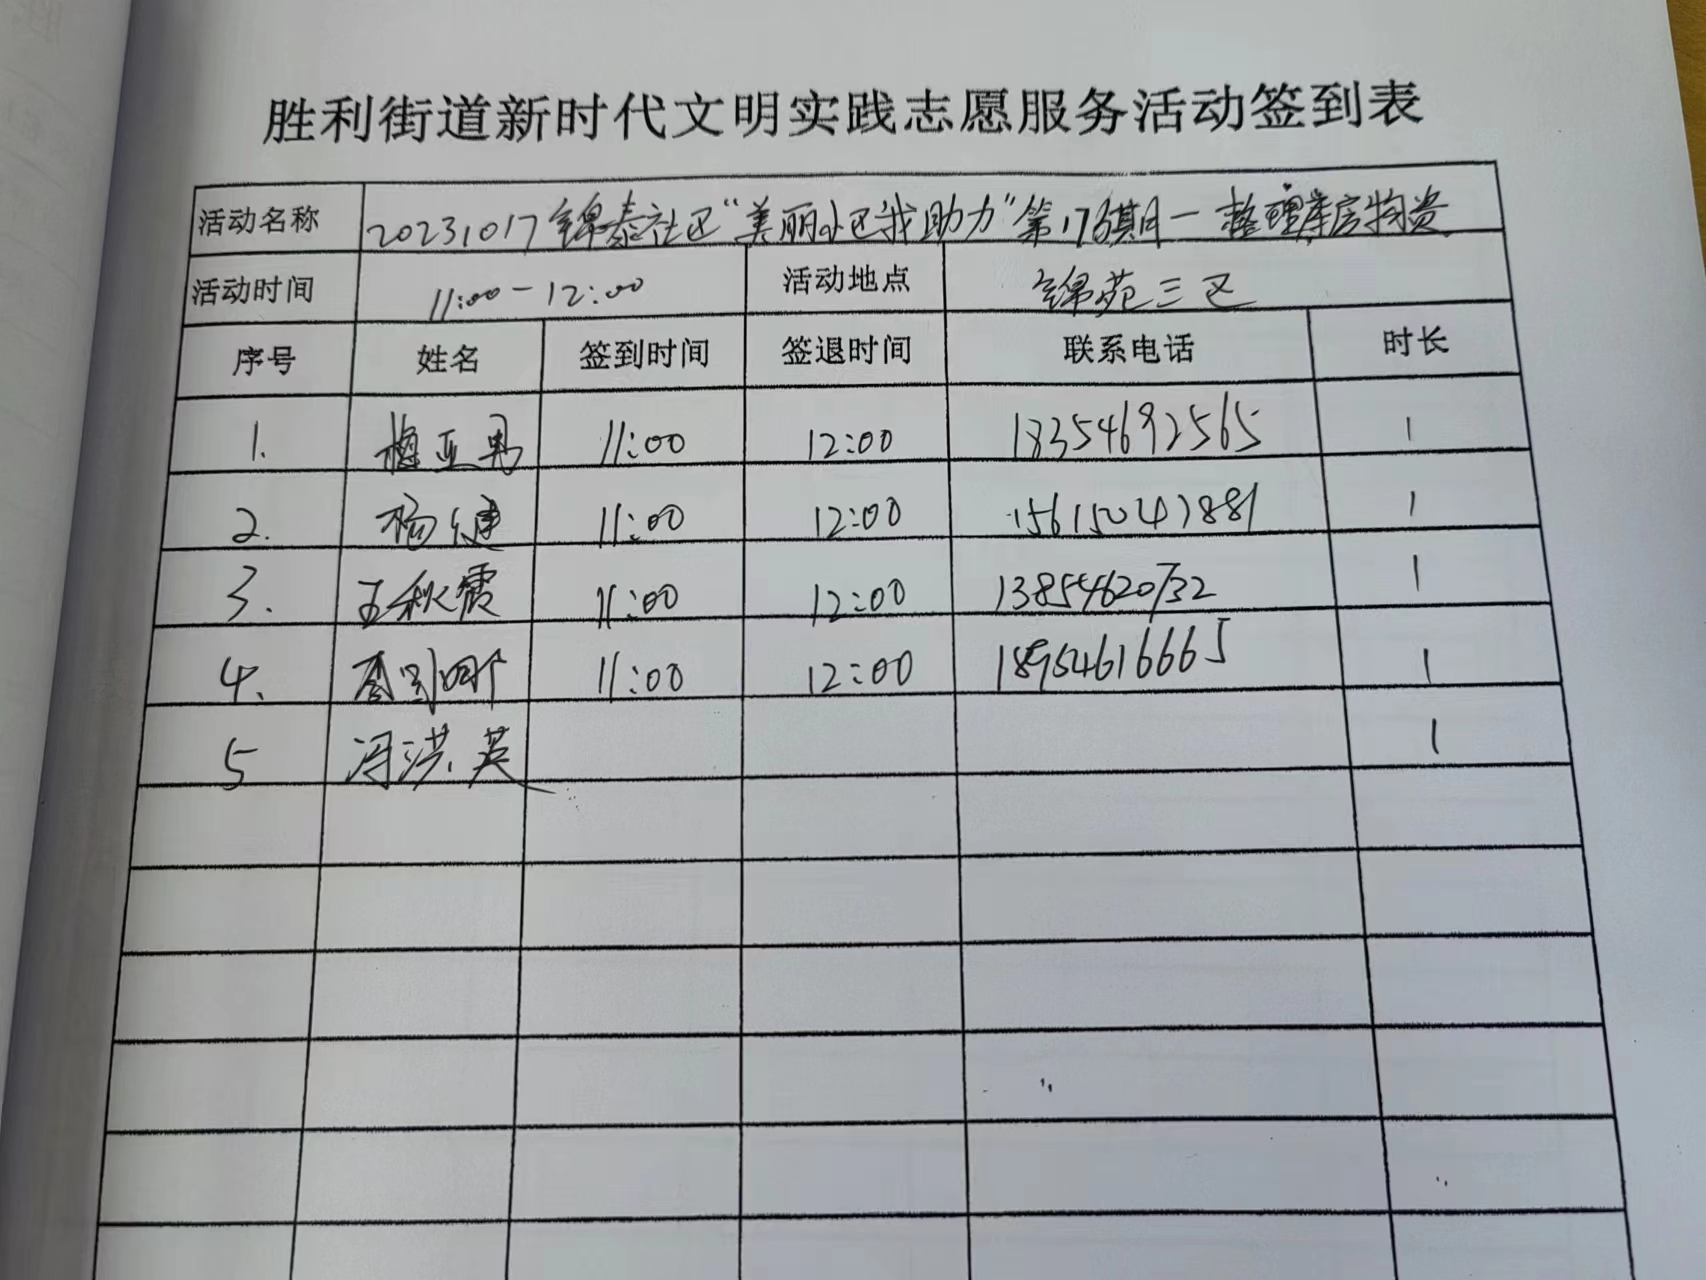 胜利街道新时代文明实践志愿服务活动签到表
活动名称 20231017锦泰社区“美丽小区我助力”第173期一整理库房物资
活动时间 11:00-12:00 活动地点 锦苑三区
序号 姓名 签到时间 签退时间 联系电话 时长
1. 梅亚男 11:00 12:00 18354692565 1
2. 杨健 11:00 12:00 15615042881 1
3. 王秋霞 11:00 12:00 13854620732 1
4. 11:00 12:00 18954616665 1
5 冯洪英 1